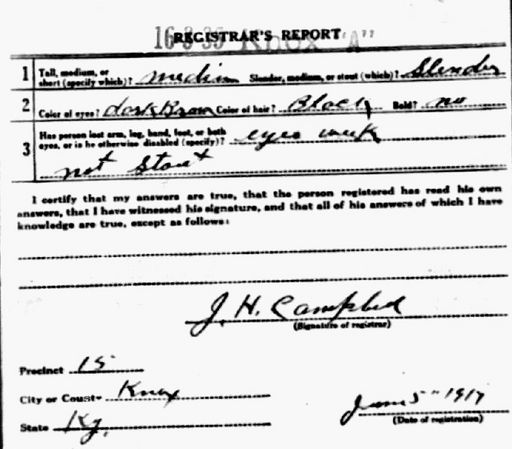 REGISTRAR'S REPORT
16-3-35 Knox "A"
1 Tall, medium, or short (specify which)? medium Slender, medium, or stout (which)? Slender
2 Color of eyes? dark Brown Color of hair? Black Bald? no
3 Has person lost arm, leg, hand, foot, or both
eyes, or is he otherwise disabled (specify)? eyes weak
not Stout
I certify that my answers are true, that the person registered has read his own
answers, that I have witnessed his signature, and that all of his answers of which I have
knowledge are true, except as follows:
J. H. Campbell
(Signature of registrar)
Precinct 15
City or County Knox
State Ky.
June 5" 1917
(Date of registration)